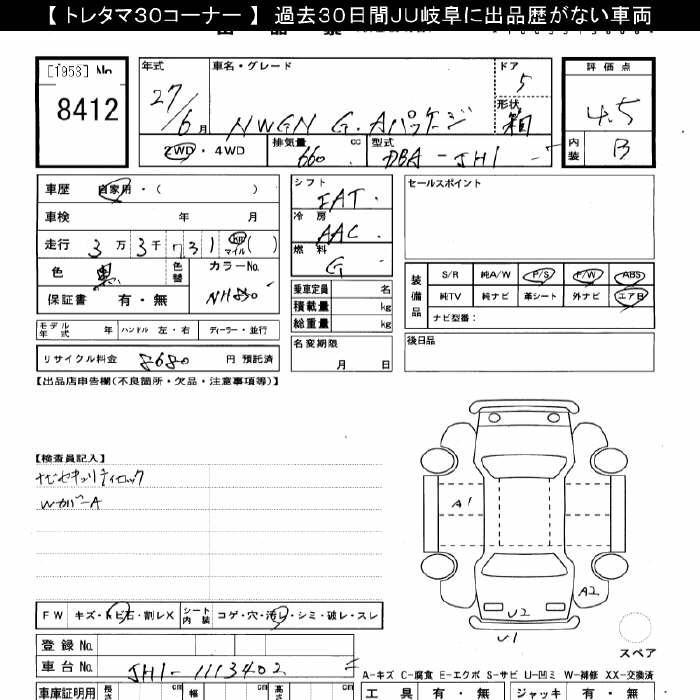 【 トレタマ30コーナー 】 過去30日間JU岐阜に出品歴がない車両
[1953] No
8412
年式
27/6 月
車名・グレード
NWGN G・Aパッケージ
ドア
5
形状
箱
評価点
4.5
内装
B
2WD ・ 4WD
排気量
660 cc
型式
DBA-JH1
車歴 自家用・( )
車検 年 月
走行 3万3千731 km マイル( )
色 黒 色替
カラーNo.
NH850
保証書 有・無
シフト
FAT
冷房
AAC
燃料
G
セールスポイント
装備品
S/R 純A/W P/S P/W ABS
純TV 純ナビ 革シート 外ナビ エアB
ナビ型番:
乗車定員 名
積載量 kg
総重量 kg
モデル年式 年 ハンドル 左・右 ディーラー・並行
名変期限
月 日
後日品
リサイクル料金 8680 円 預託済
【出品店申告欄(不良箇所・欠品・注意事項等)】
【検査員記入】
ナビセキュリティロック
WカバーA
A1
A2
U2
U1
スペア
FW キズ・トビ石・割レX シート内装 コゲ・穴・汚レ・シミ・破レ・スレ
登録 No.
車台 No. JH1-1113402
A-キズ C-腐食 E-エクボ S-サビ U-凹ミ W-補修 XX-交換済
車庫証明用 長さ cm 幅 cm 高さ cm
工具 有・無 ジャッキ 有・無